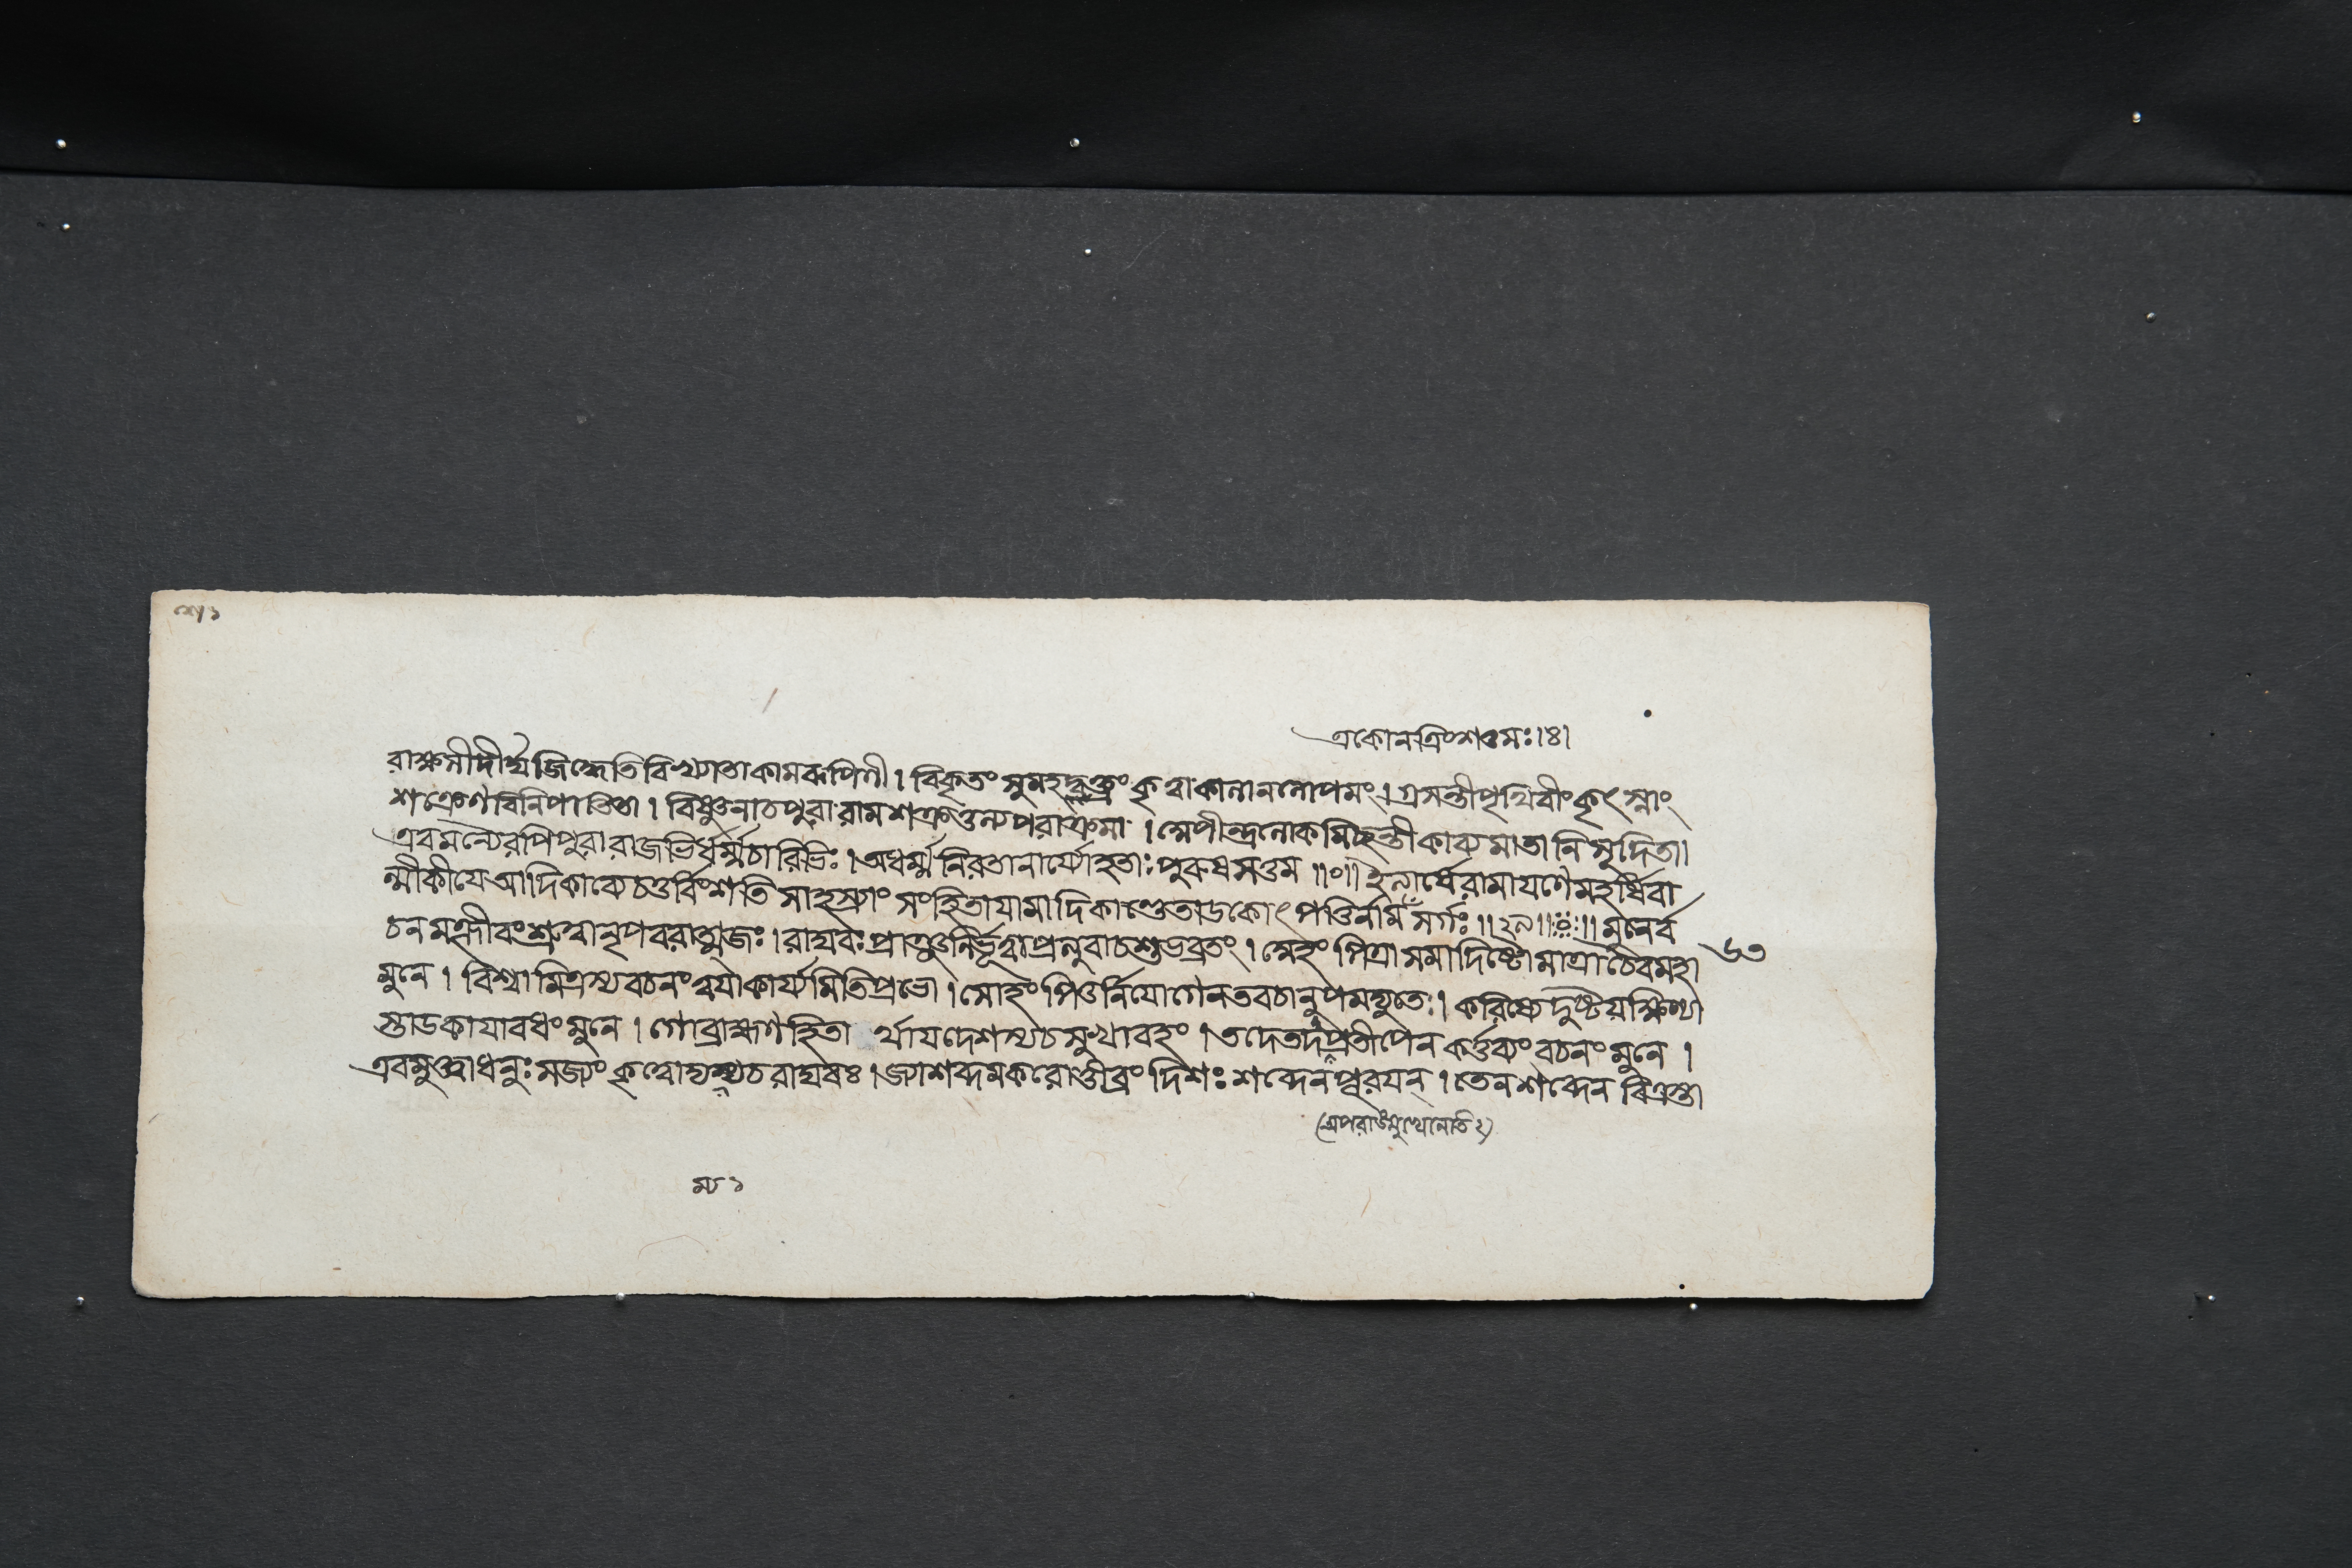 একোনত্রিংশত্তমঃ।৪।
রাক্ষসীদীর্ঘজিহ্বেতিবিখ্যাতাকামরূপিণী। বিকৃতং সুমহদ্বক্ত্রং কৃত্বাকালাননোপমং। গ্রসন্তীপৃথিবীংকৃৎস্নাং
শক্রেণবিনিপাতিতা। বিষ্ণুনাচপুরারামশক্রতুল্যপরাক্রমা। স্মেপীন্দ্রলোকমিচ্ছন্তীকাব্যমাতানিসূদিতা।
এবমন্যৈরপিপুরারাজভির্ধর্ম্মচারিভিঃ। অধর্ম্মনিরতানার্য্যোহতাঃ পুরুষসত্তম॥০॥ ইত্যার্ষেরামায়ণেমহর্ষিবা
ল্মীকীয়ে আদিকাব্যেচতুর্ব্বিংশতিসাহস্র্যাং সংহিতায়ামাদিকাণ্ডেতাডকোৎপত্তির্নাম সর্গঃ॥২৯॥ঃ॥ মুনের্ব
চনমক্লীবংশ্রুত্বানৃপবরাত্মজঃ। রাঘবঃপ্রাঞ্জলির্ভূত্বাপ্রত্যুবাচশুভব্রতং। স্মেহং পিত্রাসমাদিষ্টোমাত্রাচৈবমহা
৬৩
মুনে। বিশ্বামিত্রস্যবচনংত্বয়াকার্য্যমিতিপ্রভো। সোহং পিতুর্নিয়োগেনতবচানুপমদ্যুতে। করিষ্যেদুষ্টযক্ষিণ্যা
স্তাডকায়াবধংমুনে। গোব্রাহ্মণহিতা র্থায়দেশস্যচসুখাবহং। তদেতদপ্রতীপেনকর্ত্তব্যং বচনংমুনে।
এবমুক্ত্বাধনুঃ সজ্যং কৃত্বোদ্যম্যচরাঘবঃ। জ্যাশব্দমকরোত্তীব্রং দিশঃ শব্দেনপূরয়ন্। তেনশব্দেনবিত্রস্তা
(অপরাঙ্মুখেনেতি২)